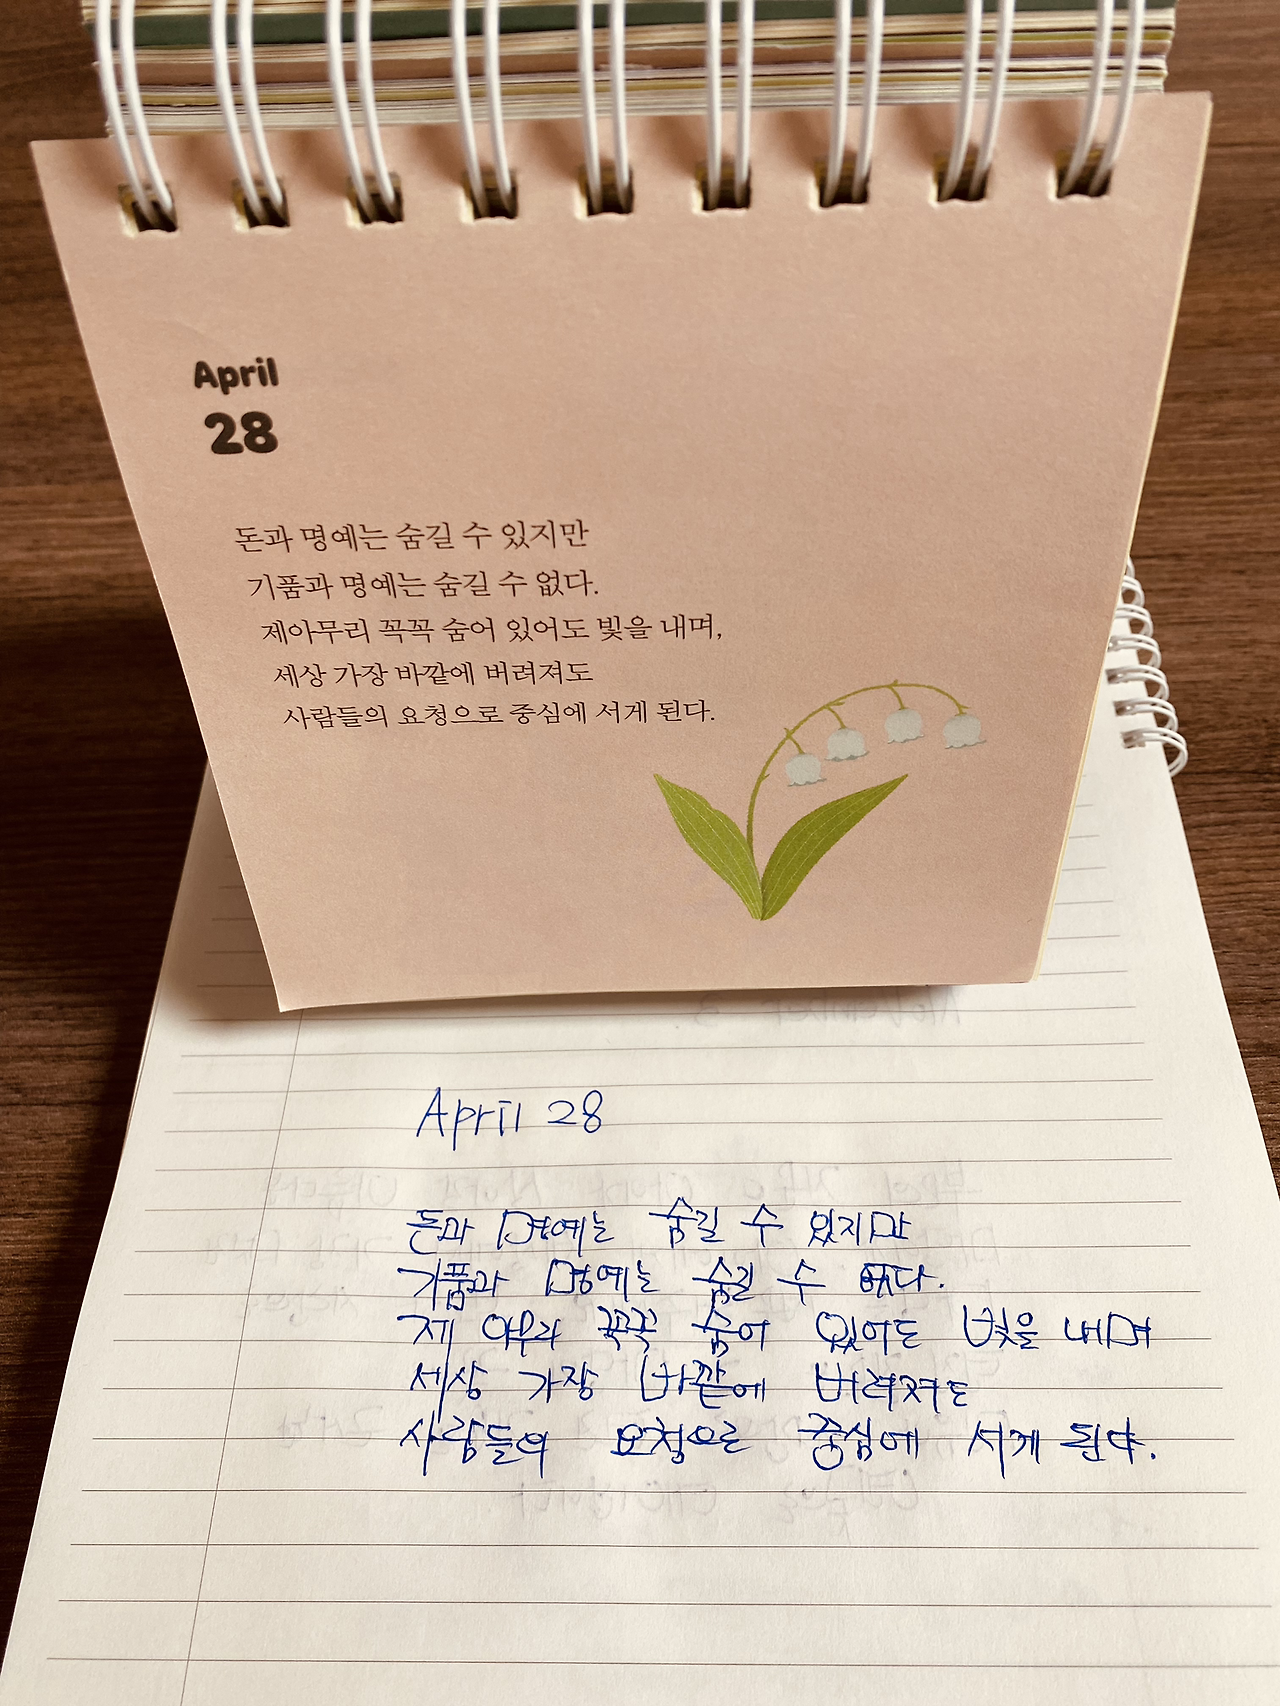 April
28
돈과 명예는 숨길 수 있지만
기품과 명예는 숨길 수 없다.
제아무리 꼭꼭 숨어 있어도 빛을 내며,
세상 가장 바깥에 버려져도
사람들의 요청으로 중심에 서게 된다.
April 28
돈과 명예는 숨길 수 있지만
기품과 명예는 숨길 수 없다.
제 아무리 꼭꼭 숨어 있어도 빛을 내며
세상 가장 바깥에 버려져도
사람들의 요청으로 중심에 서게 된다.